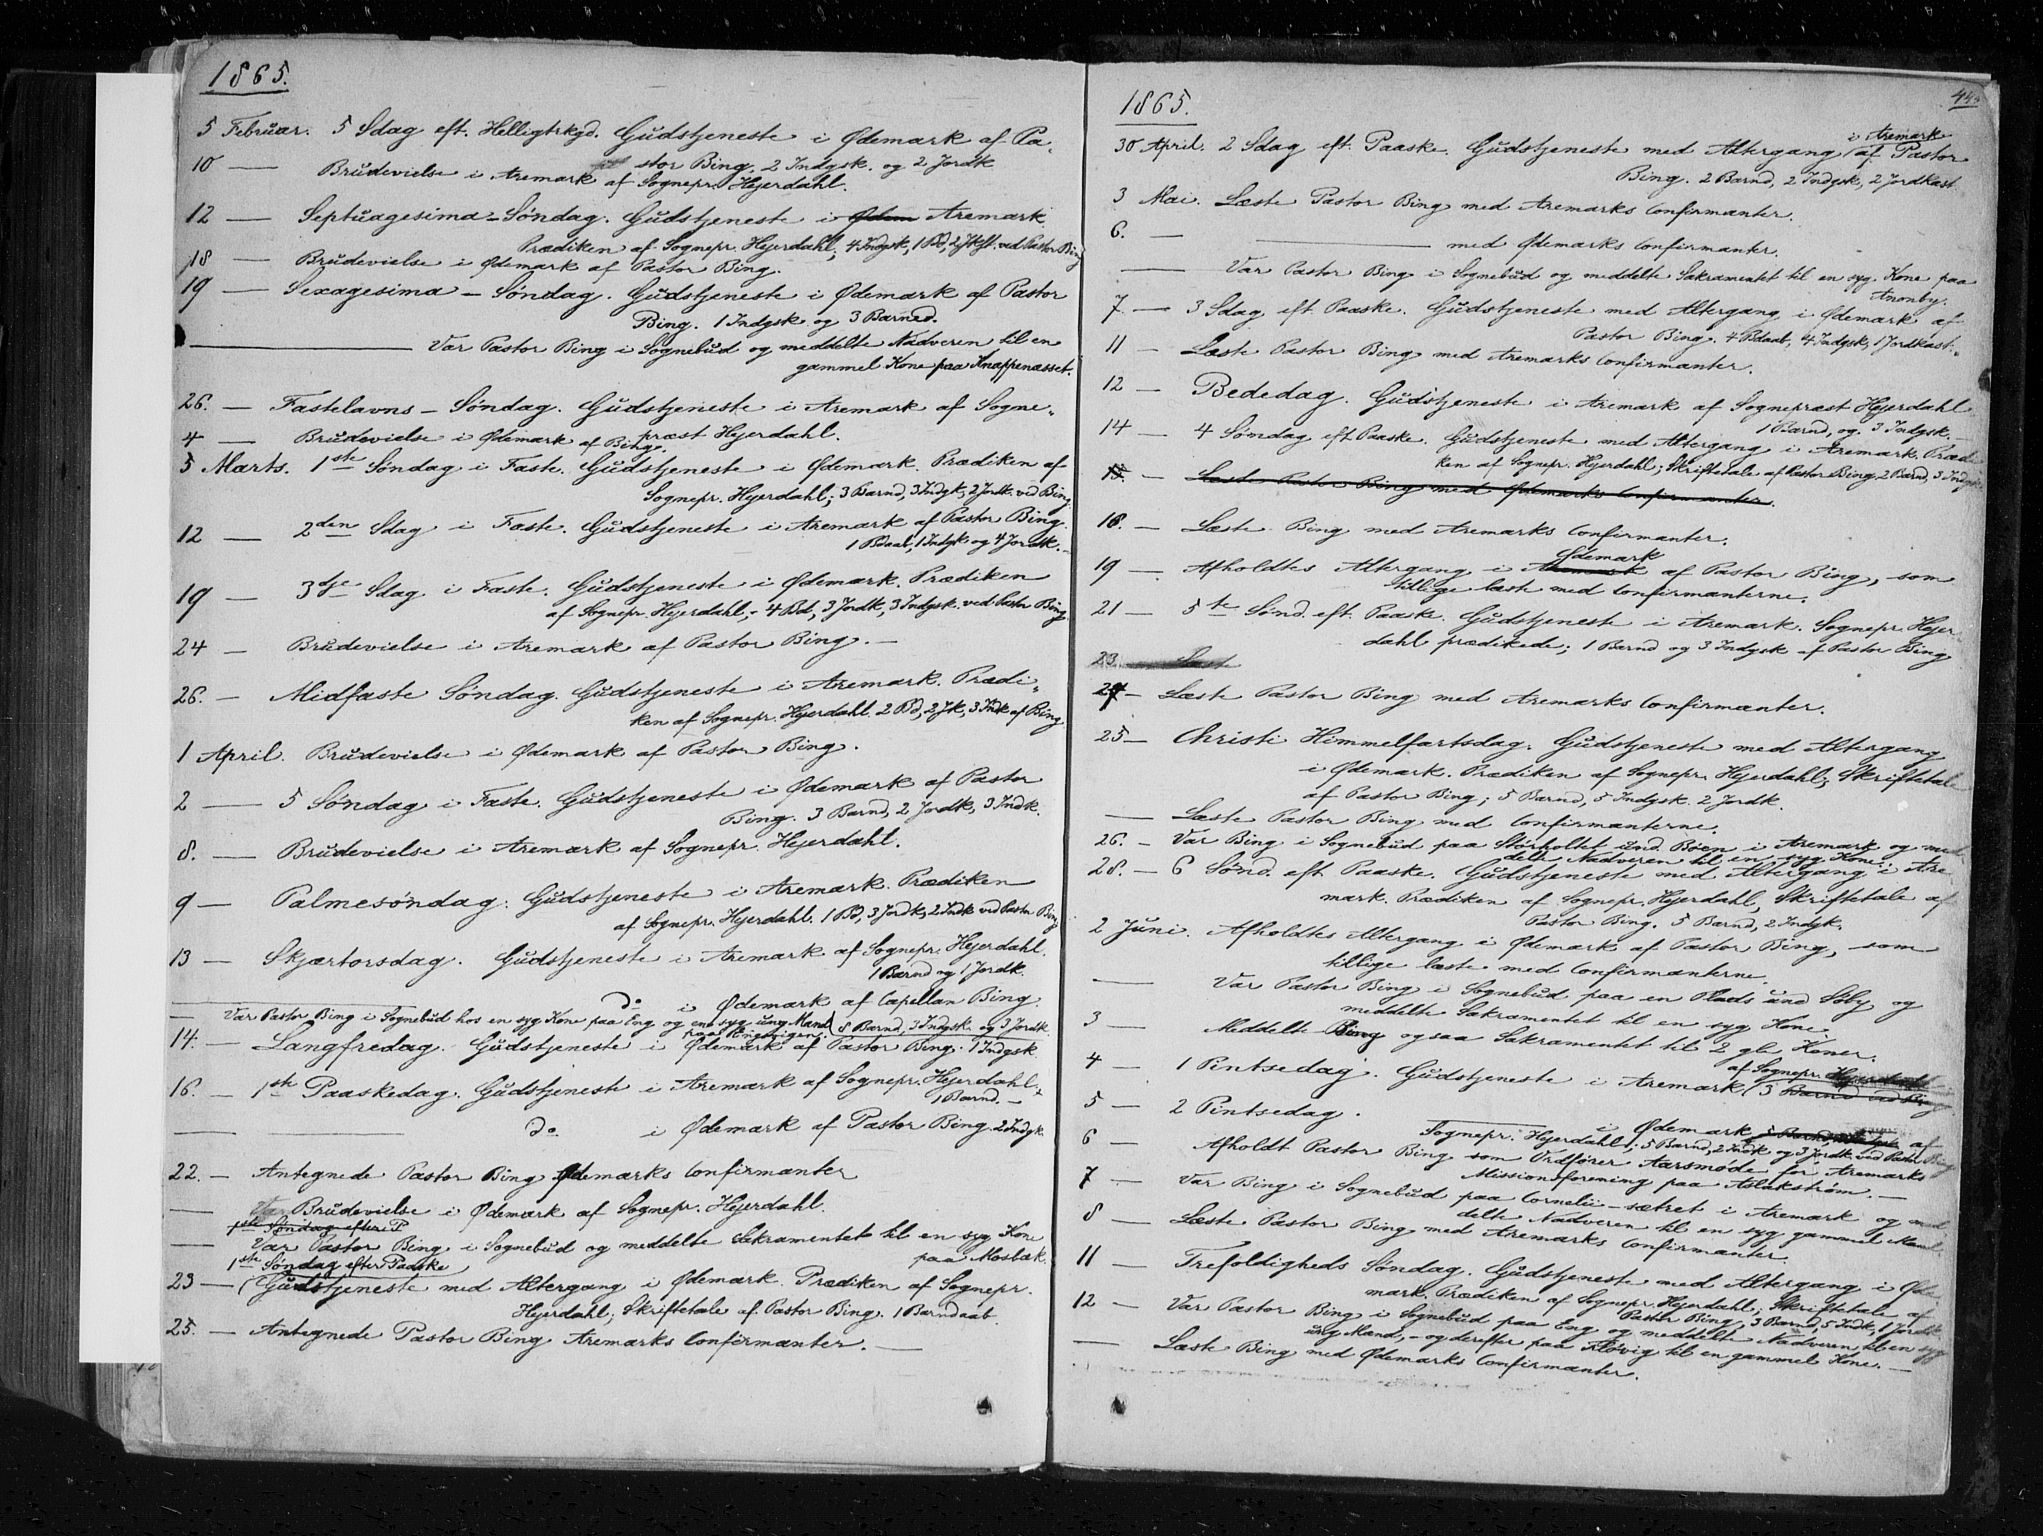 1865.
5 Februar. 5 Sdag eft. Helligtrkgd. Gudstjeneste i Ødemark af Pa-
stor Bing. 2 Indgsk. og 2 Jordk
10 — Brudevielse i Aremark af Sognepr. Hjerdahl.
12 — Septuagesima-Søndag. Gudstjeneste i Ødem Aremark
Prædiken af Sognepr. Hjerdahl; 4 Indgsk, 1 Bd, 2 Jkst. ved Pastor Bing
18 — Brudevielse i Ødemark af Pastor Bing.
19 — Sexagesima-Søndag. Gudstjeneste i Ødemark af Pastor
Bing. 1 Indgsk og 3 Barned.
— Var Pastor Bing i Sognebud og meddelte Nadveren til en
gammel Kone paa Knappenæsset.
26. — Fastelavns-Søndag. Gudstjeneste i Aremark af Sogne-
præst Hjerdahl.
4 — Brudevielse i Ødemark af Bing.
5 Marts. 1ste Søndag i Faste. Gudstjeneste i Ødemark. Prædiken af
Sognepr. Hjerdahl; 3 Barnd, 3 Indgk, 2 Jordk. ved Bing
12 — 2den Sdag i Faste. Gudstjeneste i Aremark af Pastor Bing.
1 Bdaab, 1 Indgk og 4 Jordk. —
19 — 3dje Sdag i Faste. Gudstjeneste i Ødemark. Prædiken
af Sognepr. Hjerdahl; 4 Bd, 3 Jordk, 3 Indgsk. ved Pastor Bing
24 — Brudevielse i Aremark af Pastor Bing. —
26. — Midfaste Søndag. Gudstjeneste i Aremark. Prædi-
ken af Sognepr. Hjerdahl. 2 Bd, 2 Jk, 3 Indk af Bing
1 April. Brudevielse i Ødemark af Pastor Bing.
2 — 5 Søndag i Faste. Gudstjeneste i Ødemark af Pastor
Bing. 3 Barnd, 2 Jordk, 3 Indk.
8. — Brudevielse i Aremark af Sognepr. Hjerdahl.
9 — Palmesøndag. Gudstjeneste i Aremark. Prædiken
af Sognepr. Hjerdahl. 1 Bd, 3 Jordk, 2 Indk ved Pastor Bing
13 — Skjærtorsdag. Gudstjeneste i Aremark af Sognepr. Hjerdahl.
1 Barnd og 1 Jordk.
— do i Ødemark af Capellan Bing.
8 Barnd, 3 Indgsk og 3 Jordk
Var Pastor Bing i Sognebud hos en syg Kone paa Eng og en syg ung Mand
14. — Langfredag. Gudstjeneste i Ødemark af Pastor Bing. 1 Indgsk.
16. — 1ste Paaskedag. Gudstjeneste i Aremark af Sognepr. Hjerdahl.
1 Barnd. —
— do i Ødemark af Pastor Bing. 2 Indgk.
22. — Antegnede Pastor Bing Ødemarks Confirmanter
— Brudevielse i Ødemark af Sognepr. Hjerdahl.
1ste Søndag efter P
— Var Pastor Bing i Sognebud og meddelte Sakramentet til en syg Kone
paa Mosbæk.
1ste Søndag efter Paaske
23 — Gudstjeneste med Altergang i Ødemark. Prædiken af Sognepr.
Hjerdahl; Skriftetale af Pastor Bing. 1 Barndaab.
25. — Antegnede Pastor Bing Aremarks Confirmanter. —
1865.
30 April. 2 Sdag eft. Paaske. Gudstjeneste med Altergang i Aremark af Pastor
Bing. 2 Barnd, 2 Indgsk, 2 Jordkast
3 Mai. Læste Pastor Bing med Aremarks Confirmanter.
6. — — med Ødemarks Confirmanter.
— Var Pastor Bing i Sognebud og meddelte Sakramentet til en syg Kone paa
Anonby.
7 — 3 Sdag eft Paaske. Gudstjeneste med Altergang i Ødemark af
Pastor Bing. 4 Bdaab, 4 Indgsk, 1 Jordkast.
11 — Læste Pastor Bing med Aremarks Confirmanter.
12 — Bededag. Gudstjeneste i Aremark af Sognepræst Hjerdahl
1 Barnd, og 3 Indgsk. —
14 — 4 Søndag eft Paaske. Gudstjeneste med Altergang i Aremark. Prædi
ken af Sognepr. Hjerdahl; Skriftetale af Pastor Bing, 2 Barnd, 3 Indgsk
15. — Læste Pastor Bing med Ødemarks Confirmanter.
18. — Læste Bing med Aremarks Confirmanter.
19 — Afholdtes Altergang i Aremark Ødemark af Pastor Bing, som
tillige læste med Confirmanterne.
21 — 5te Sønd. eft. Paask. Gudstjeneste i Aremark. Sognepr. Hjer
dahl prædikede; 1 Barnd og 3 Indgsk af Pastor Bing
23 Læste
24 — Læste Pastor Bing med Aremarks Confirmanter.
25 — Christi Himmelfartsdag. Gudstjeneste med Altergang
i Ødemark. Prædiken af Sognepr. Hjerdahl; Skriftetale
af Pastor Bing; 5 Barnd, 5 Indgsk. 2 Jordk.
— Læste Pastor Bing med Confirmanterne.
26. — Var Bing i Sognebud paa Storholtet und. Bøen i Aremark og med-
delte Nadveren til en syg Kone.
28. — 6 Sønd. eft Paaske. Gudstjeneste med Altergang i Are
mark. Prædiken af Sognepr. Hjerdahl, Skriftetale af
Pastor Bing. 5 Barnd, 2 Indgk.
2 Juni. Afholdtes Altergang i Ødemark af Pastor Bing, som
tillige læste med Confirmanterne.
— Var Pastor Bing i Sognebud paa en Plads und Søby og
meddelte Sakramentet til en syg Kone.
3 — Meddelte Bing ogsaa Sakramentet til 2 gle Koner.
4 — 1 Pintsedag. Gudstjeneste i Aremark af Sognepr. Hjerdahl
3 Barnd ved Bing
5 — 2 Pintsedag. i Ødemark af
Sognepr. Hjerdahl; 5 Barnd, 2 Indk og 3 Jordk. ved Pastor Bing
6 — Afholdt Pastor Bing som Ordfører Aarsmøde for Aremarks
Missionsforening paa Aslakstrøm. —
7 — Var Bing i Sognebud paa Cornelii-sætret i Aremark og med
delte Nadveren til en syg gammel Mand.
8 — Læste Pastor Bing med Aremarks Confirmanter.
11 — Trefoldigheds Søndag. Gudstjeneste med Altergang i Øde
mark. Prædiken af Sognepr. Hjerdahl; Skriftetale af
Pastor Bing, 3 Barnd, 5 Indk, 1 Jordk
12 — Var Pastor Bing i Sognebud paa Eng og meddelte Nadveren til en syg
ung Mand, — og derefter paa Kløvig til en gammel Kone. —
— Læste Bing med Ødemarks Confirmanter.